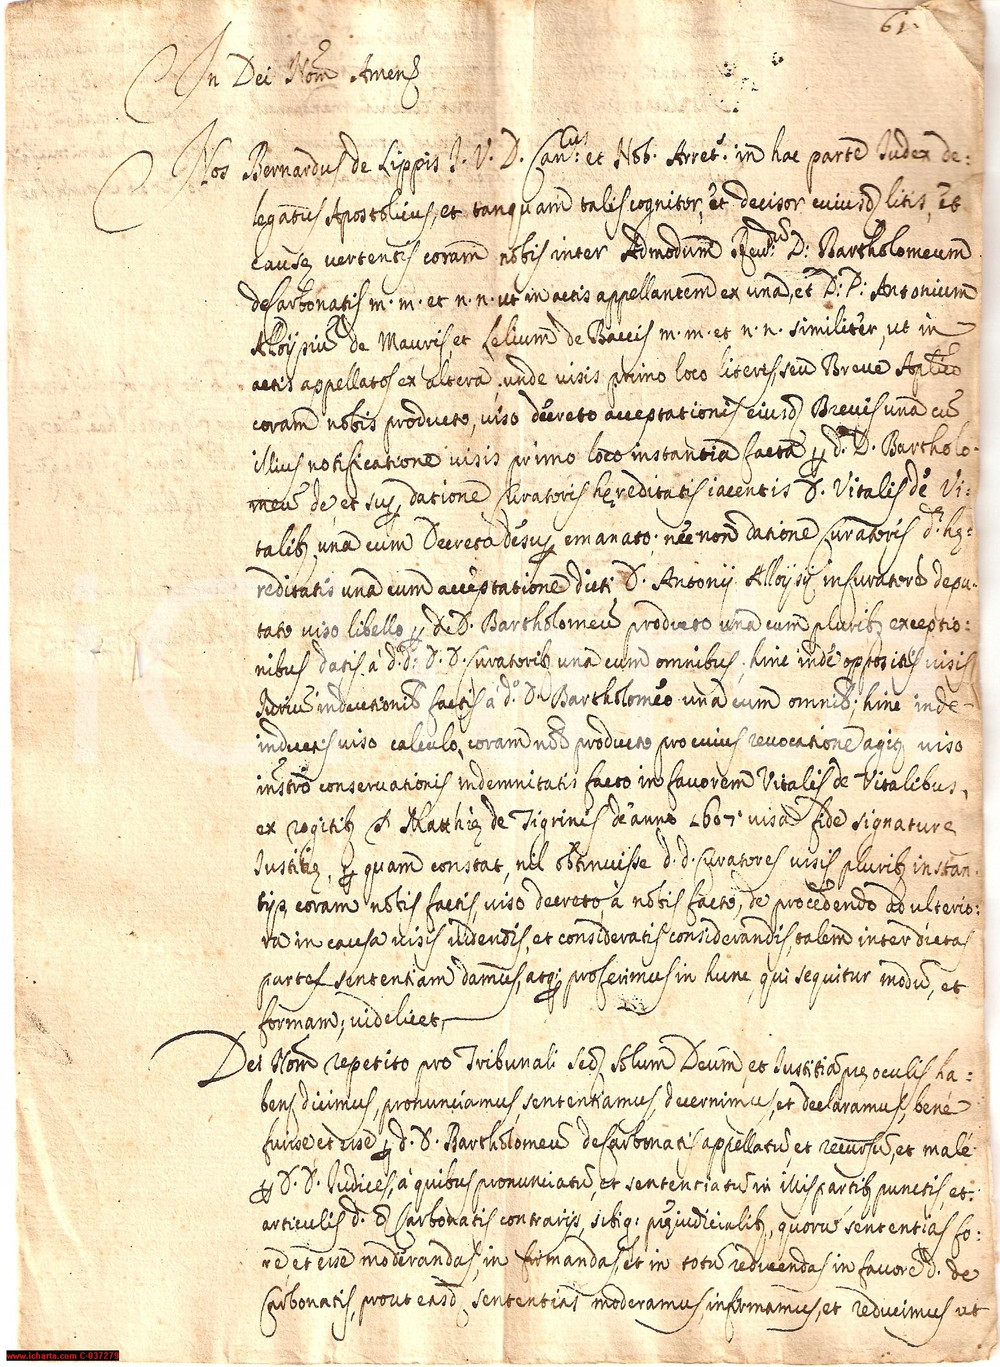 61.
In Dei Nom̃ Amen
Nos Bernardus de Lippis J. V. D. Can.cus et Nob. Arret.s in hac parte Iudex de:
legatus Apostolicus, et tanquam talis cognitor, et decisor cuiusd. litis, et
causę vertentis coram nobis inter Admodum Reu.dum D: Bartholomeum
de Carbonatis m. m. et n. n. ut in actis appellantem ex una, et D: P: Antonium
Alloysiũ de Mauris, et Lelium de Baccis m. m. et n. n. similiter, ut in
actis appellatos ex altera, unde visis primo loco literis, seu Breve Aplico
coram nobis producto, viso decreto acceptationis eiusd. Brevis una cũ
illius notificatione visis primo loco instantia facta ꝑ d. D. Bartholo-
meũ de, et suꝑ datione Curatoris hęreditatis iacentis D. Vitalis de Vi:
talibꝫ una cum Decreto desuꝑ emanato; nec non datione Curatoris d.ę hę:
reditatis una cum acceptatione dicti D. Antonij Alloysij in Curatorẽ depu:
tato viso libello ꝑ d. D. Bartholomeũ producto una cum pluribꝫ exceptio:
nibus datis à d. d. D. D. Curatoribꝫ una cum omnibus, hinc inde oppositis visis
Iuriũ inductionibꝫ factis à d.o D. Bartholomeo una cum omnibꝫ; hinc inde
inductis viso calculo, coram nob. producto pro cuius revocatione agiꝫ viso
instrõ conservationis indemnitatis facto in favorem Vitalis de Vitalibus,
ex rogitibꝫ D. Matthię de Tigrinis de anno 1607. visa fide signaturę
Iustitię, ꝑ quam constat, nil obtinuisse d. d. Curatores visis pluribꝫ instan:
tijs coram nobis factis, viso decreto, à nobis facto, de procedendo ad ulterio:
ra in causa visis uidendis, et consideratis considerandis, talem inter dictas
partes sententiam damus, atqꝫ proferimus in hunc, qui sequitur modũ, et
formam; videlicet,
Dei Nom̃ repetito pro Tribunali Sedꝫ Solum Deum, et Iustitiã prę oculis ha:
bens dicimus, pronunciamus, sententiamus, decernimus, et declaramus, bene
fuisse et esse ꝑ d. D. Bartholomeũ de Carbonatis appellatũ, et recursũ, et malè
ꝑ D. D. Iudices, à quibus pronunciatũ, et sententiatũ in illis partibꝫ punctis, et
articulis d. D. Carbonatis contrarijs, sibiqꝫ pręiudicialibꝫ, quorũ sententias fo:
re, et esse moderandas, infirmandas et in totũ reducendas in favorẽ d. de
Carbonatis, prout easd. sententias moderamus, infirmamus, et reducimus ut
www.icharta.com C-037279